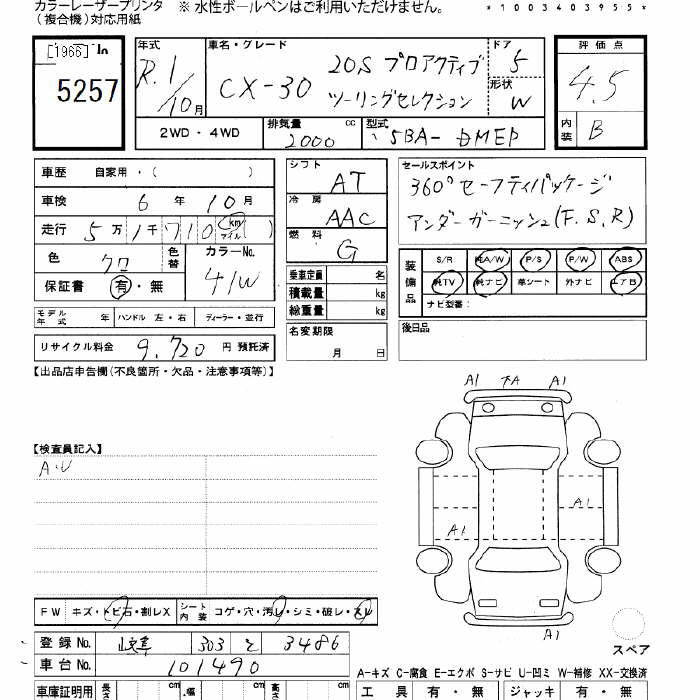 カラーレーザープリンタ ※ 水性ボールペンはご利用いただけません。 *1003403955*
(複合機)対応用紙
[1966] In
5257
年式 車名・グレード ドア 評価点
R.1 /10月 CX-30 20S プロアクティブ 5 4.5
ツーリングセレクション 形状 W
2WD・4WD 排気量 2000 cc 型式 5BA- DMEP 内装 B
車歴 自家用・( )
車検 6 年 10 月
走行 5万 1千 7 1 0 km マイル )
色 クロ 色替 カラーNo. 41W
保証書 有・無
モデル年式 年 ハンドル 左・右 ディーラー・並行
リサイクル料金 9,720 円 預託済
シフト AT
冷房 AAC
燃料 G
乗車定員 名
積載量 kg
総重量 kg
名変期限
月 日
セールスポイント
360°セーフティパッケージ
アンダーガーニッシュ(F.S.R)
装備品 S/R 純A/W P/S P/W ABS
純TV 純ナビ 革シート 外ナビ エアB
ナビ型番:
後日品
【出品店申告欄(不良箇所・欠品・注意事項等)】
【検査員記入】
A・U
A1 A1
A1
A1
A1
スペア
FW キズ・トビ石・割レX シート内装 コゲ・穴・汚レ・シミ・破レ・スレ
登録No. 岐阜 303 そ 3486
車台No. 101490
A-キズ C-腐食 E-エクボ S-サビ U-凹ミ W-補修 XX-交換済
車庫証明用 長さ cm 幅 cm 高さ cm
工具 有・無 ジャッキ 有・無